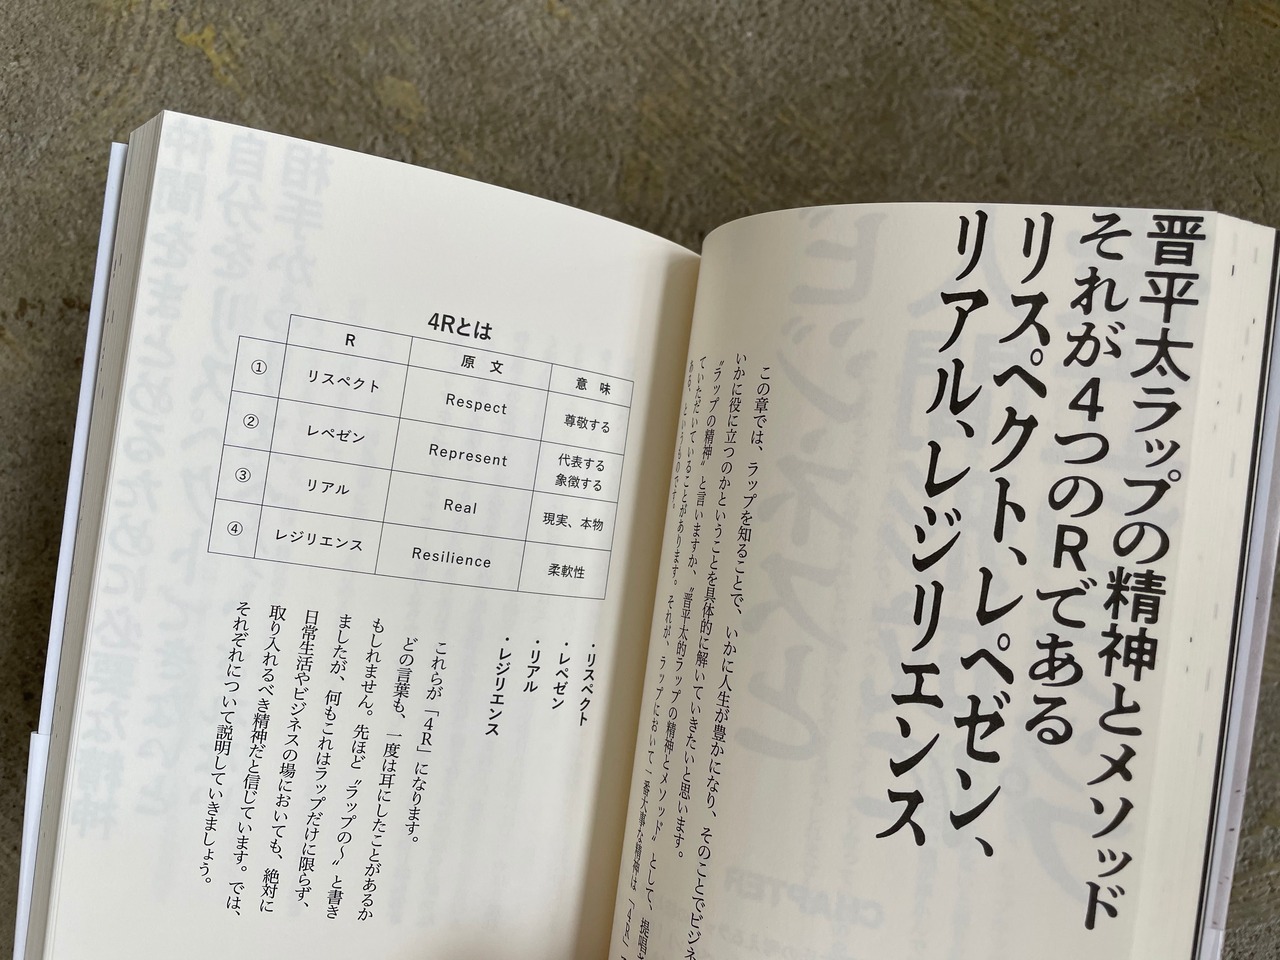 晋平太ラップの精神とメソッド
それが4つのRである
リスペクト、レペゼン、
リアル、レジリエンス
この章では、ラップを知ることで、いかに人生が豊かになり、そのことでビジネ
いかに役に立つのかということを具体的に解いていきたいと思います。
〝ラップの精神〟と言いますか、〝晋平太的ラップの精神とメソッド〟として、提唱
ていただいていることがあります。それが、ラップにおいて一番大事な精神は「4R」
ある、というものです。
・リスペクト
・レペゼン
・リアル
・レジリエンス
4Rとは
R 原文 意味
① リスペクト Respect 尊敬する
② レペゼン Represent 代表する
象徴する
③ リアル Real 現実、本物
④ レジリエンス Resilience 柔軟性
これらが「4R」になります。
どの言葉も、一度は耳にしたことがあるか
もしれません。先ほど〝ラップの〜〟と書き
ましたが、何もこれはラップだけに限らず、
日常生活やビジネスの場においても、絶対に
取り入れるべき精神だと信じています。では、
それぞれについて説明していきましょう。